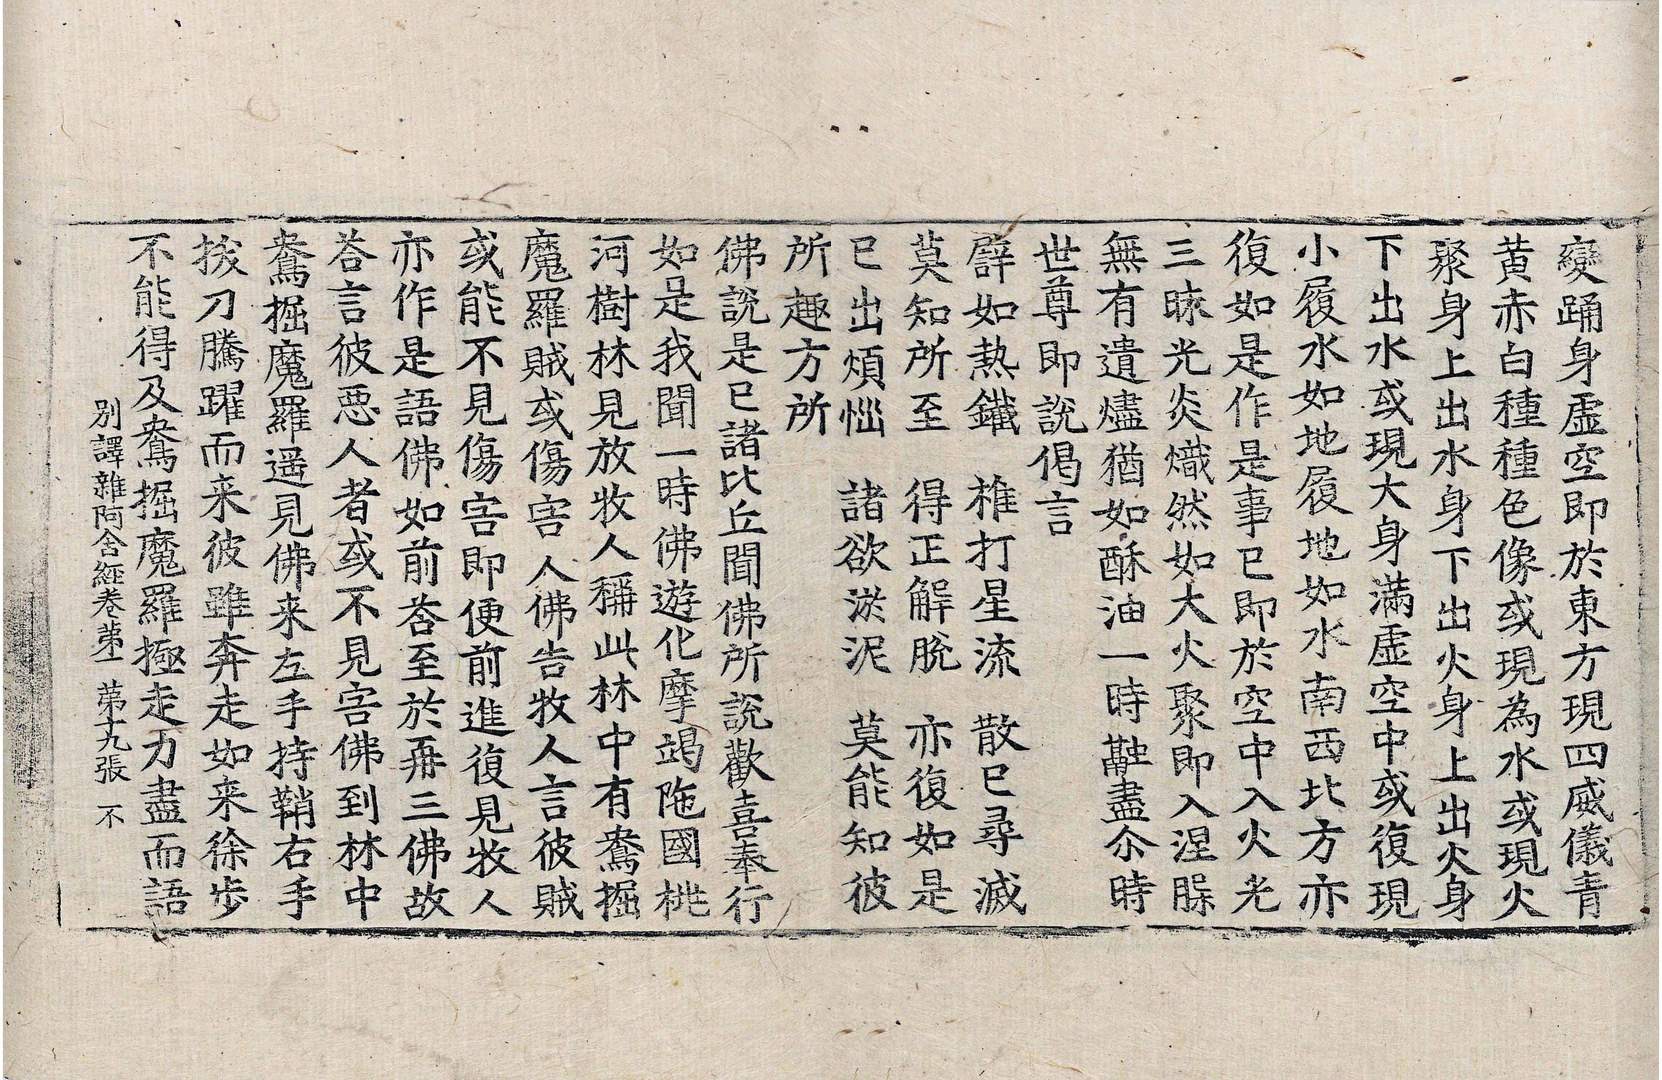 變踊身虛空即於東方現四威儀青
黃赤白種種色像或現為水或現火
聚身上出水身下出火身上出火身
下出水或現大身滿虛空中或復現
小履水如地履地如水南西北方亦
復如是作是事已即於空中入火光
三昧光炎熾然如大火聚即入涅槃
無有遺燼猶如酥油一時融盡尒時
世尊即說偈言
譬如熱鐵　椎打星流　散已尋滅
莫知所至　得正解脫　亦復如是
已出煩惱　諸欲淤泥　莫能知彼
所趣方所
佛說是已諸比丘聞佛所說歡喜奉行
如是我聞一時佛遊化摩竭陁國桃
河樹林見放牧人稱此林中有鴦掘
魔羅賊或傷害人佛告牧人言彼賊
或能不見傷害即便前進復見牧人
亦作是語佛如前荅至於再三佛故
荅言彼惡人者或不見害佛到林中
鴦掘魔羅遥見佛来左手持鞘右手
拔刀騰躍而来彼雖奔走如来徐步
不能得及鴦掘魔羅極走力盡而語
別譯雜阿含經卷苐一　苐十九張　不